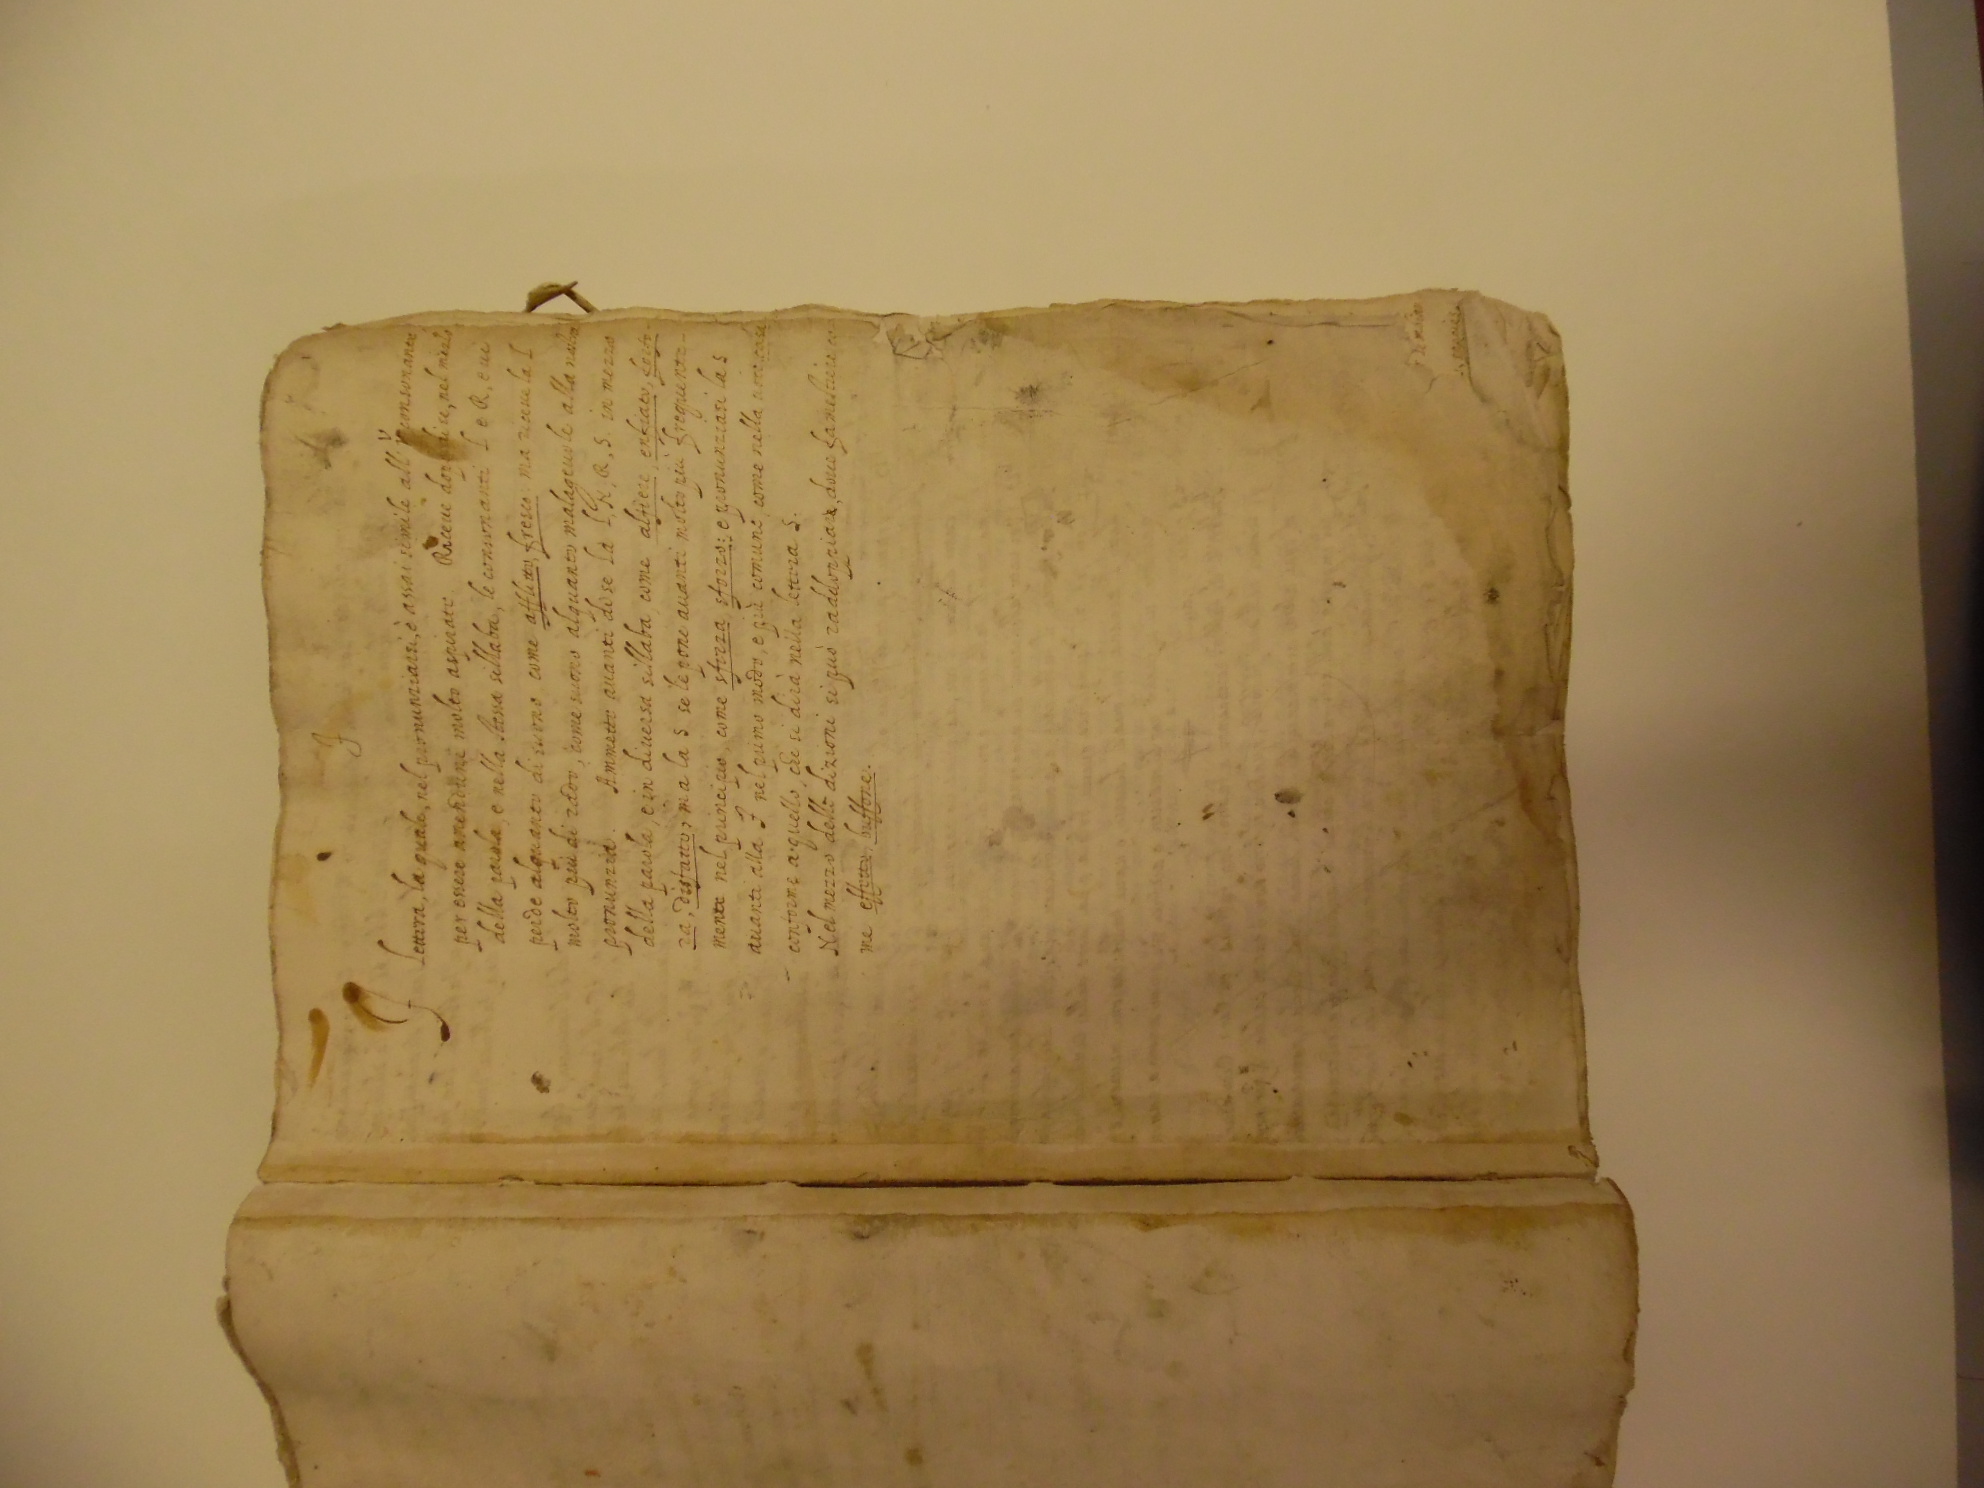 F
F lettera, la quale, nel pronunziarsi, è assai simile all' V consonante
per essere amendune molto aspirate. Riceue dopo di se, nel mezzo
della parola, e nella stessa sillaba, le consonanti L e R, e ui
perde alquanto di suono come afflitto, fresco: ma riceue la L
molto più di rado, come suono alquanto malageuole alla nostra
pronunzia. Ammette auanti di se la L, N, R, S. in mezzo
della parola, e in diuersa sillaba, come alfiere, enfiato, forfo-
ra, disfatto; ma la S se le pone auanti molto più frequente-
mente nel principio, come sforza sforzo: e pronunziasi la S
auanti alla F nel primo modo, e più comune, come nella
conforme a quello, che si dirà nella lettera S.
Nel mezzo delle dizioni si può raddoppiare, doue fa mestiere co-
me effetto, buffone.